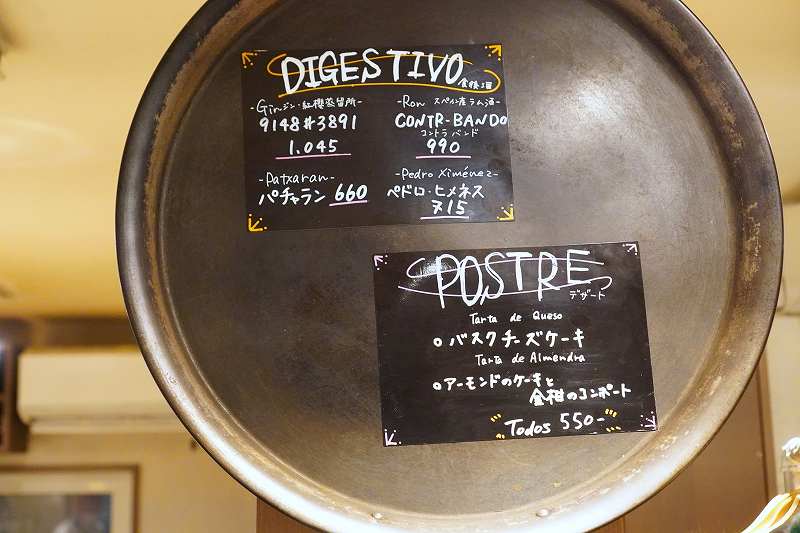 DIGESTIVO
食後酒
-Ginジン・紅櫻蒸留所-
9148#3891
1.045
-Ron スペイン産ラム酒-
CONTR-BANDO
コントラバンド
990
-Patxaran-
パチャラン 660
-Pedro Ximénez-
ペドロ・ヒメネス
715
POSTRE
デザート
Tarta de Queso
○バスクチーズケーキ
Tarta de Almendra
○アーモンドのケーキと
金柑のコンポート
Todos 550-